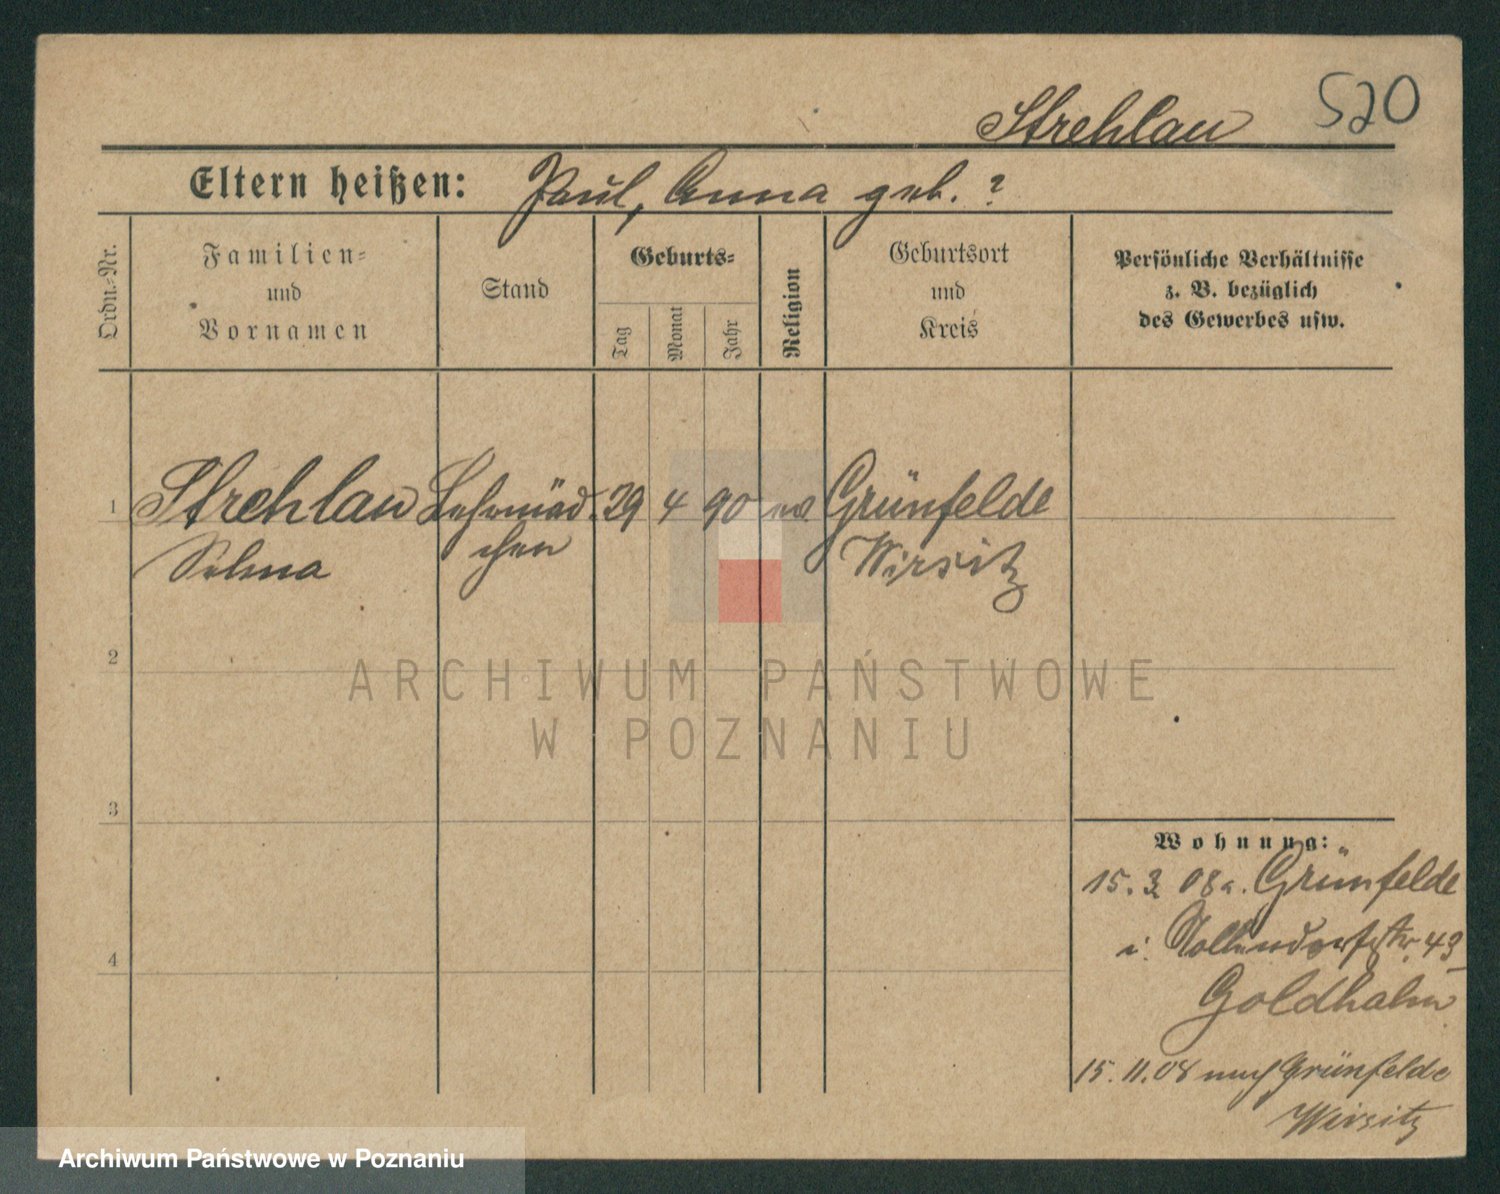 520
Strehlau
Eltern heißen: Paul, Anna geb. ?
Ordn.-Nr.
Familien-
und
Vornamen
Stand
Geburts-
Tag
Monat
Jahr
Religion
Geburtsort
und
Kreis
Persönliche Verhältnisse
z. B. bezüglich
des Gewerbes usw.
1 Strehlau Lehrmäd- 29 4 90 ev Grünfelde
Selma chen Wirsitz
2
3
4
Wohnung:
15. 3. 08 a. Grünfelde
i. Nollendorfstr. 49
Goldhahn
15. 11. 08 nach Grünfelde
Wirsitz
ARCHIWUM PAŃSTWOWE
W POZNANIU
Archiwum Państwowe w Poznaniu